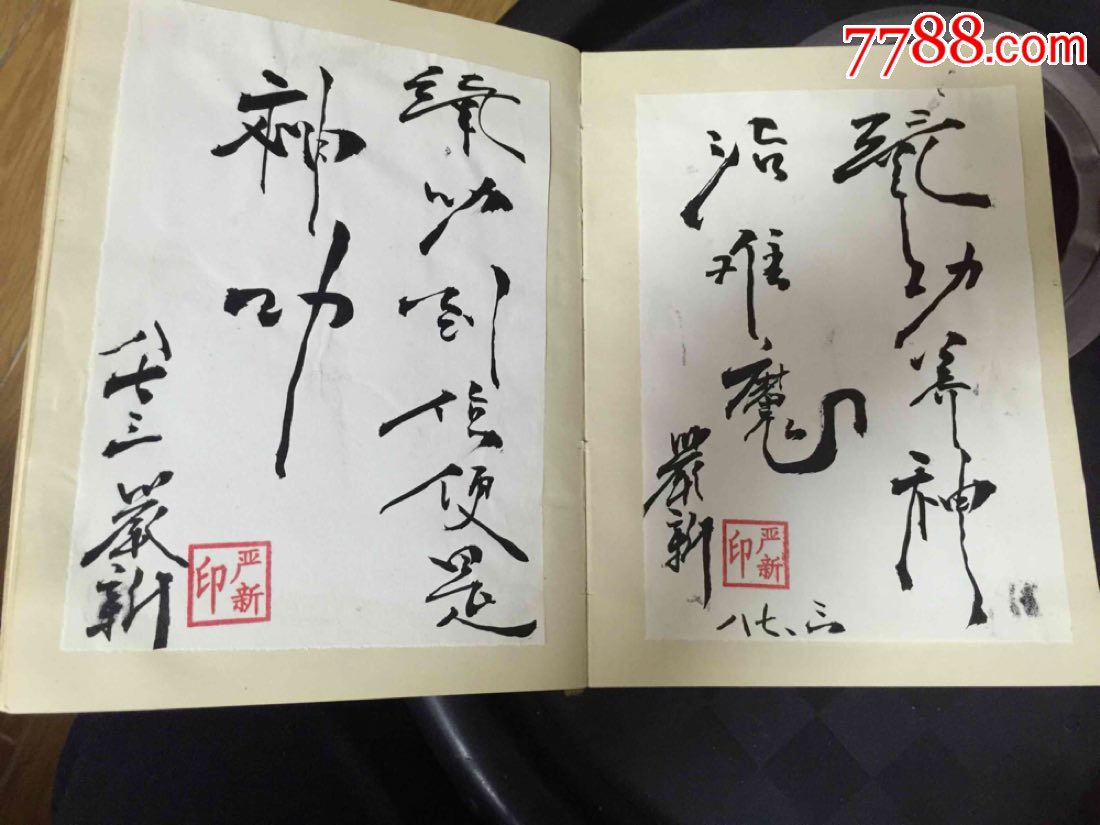 7788.com
氣功养神
治难魔
嚴新
严新印
八七、三
氣到位便是
神功
八七三 嚴新
严新印